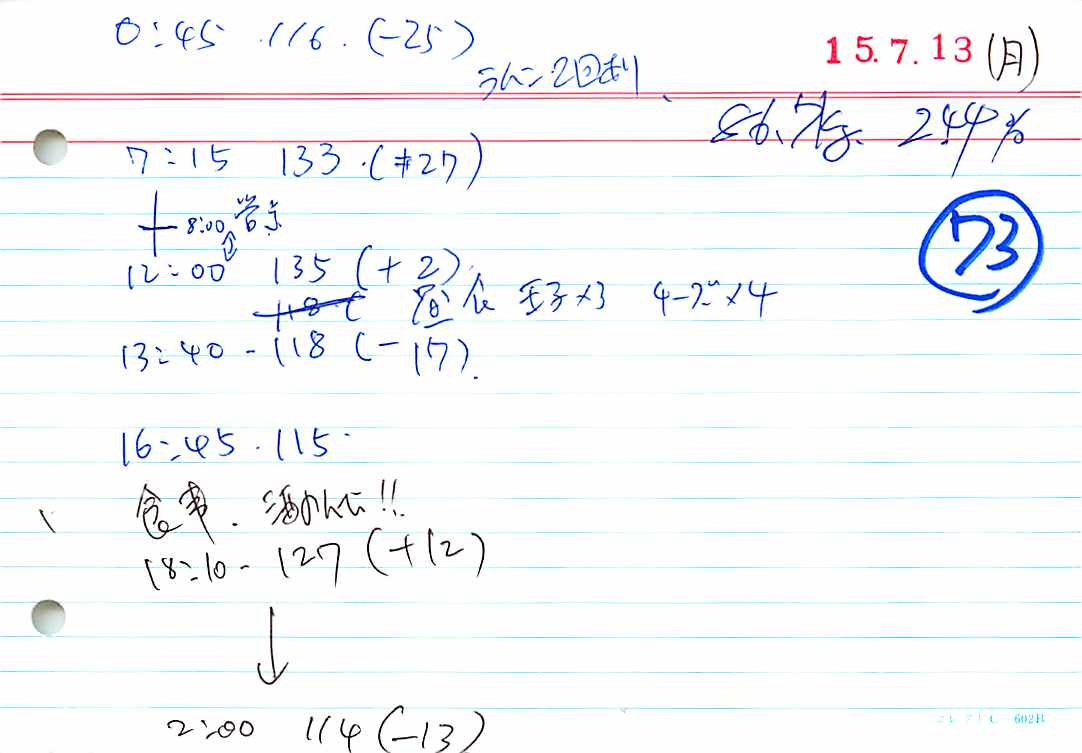 0:45 116.(-25)
15.7.13(月)
2回あり
86.7kg. 24.4%
7:15 133.(+27)
8:00
73
12:00 135 (+2)
118 (
昼食 玉子×3 チーズ×4
13:40 - 118 (-17).
16:45.115
食事.
18:10 - 127 (+12)
2:00 114 (-13)
602B